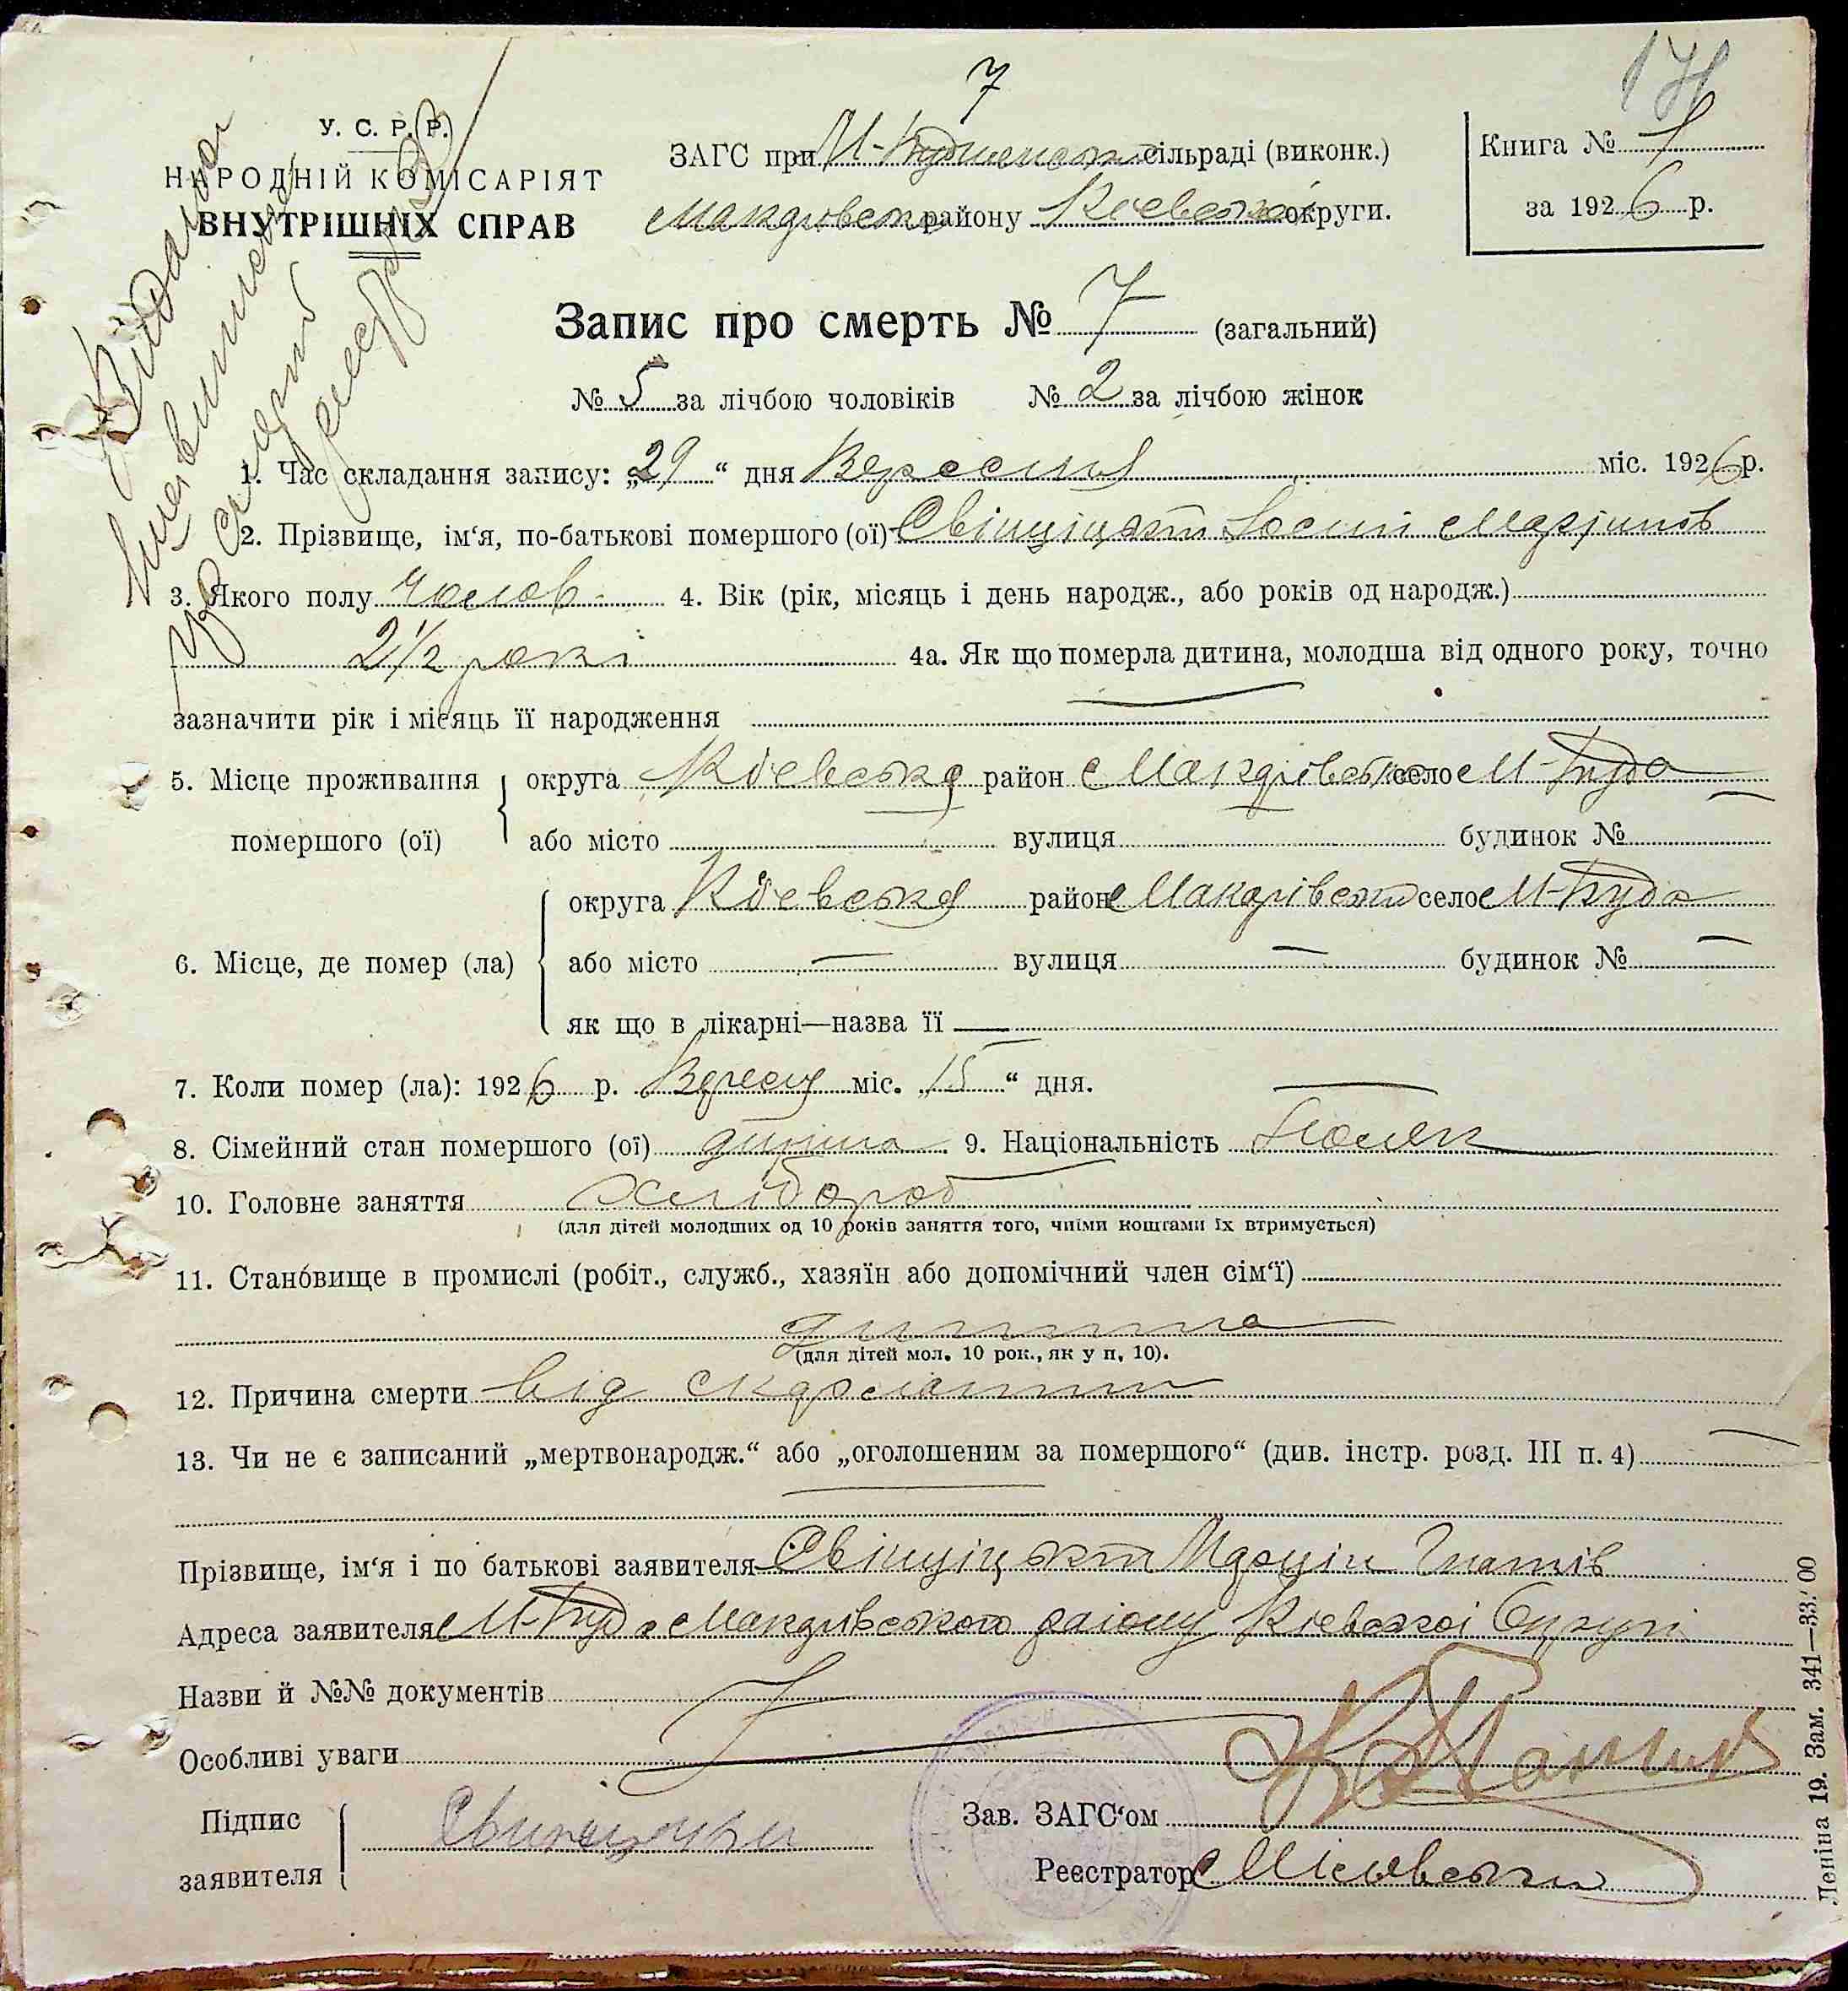 7
171
У. С. Р. Р.
НАРОДНІЙ КОМІСАРІЯТ
ВНУТРІШНІХ СПРАВ
ЗАГС при М-Будянській сільраді (виконк.)
Макарівськ району Київської округи.
Книга № 1
за 1926 р.
Видана
виписка
Запис про смерть № 7 (загальний)
№ 5 за лічбою чоловіків № 2 за лічбою жінок
1. Час складання запису: „29“ дня Вересня міс. 1926 р.
2. Прізвище, ім‘я, по-батькові помершого (ої) Свінціцький Йосип Марцінів
3. Якого полу чолов. 4. Вік (рік, місяць і день народж., або років од народж.)
2 1/2 рокі 4а. Як що померла дитина, молодша від одного року, точно
зазначити рік і місяць її народження —
5. Місце проживання помершого (ої) округа Кієвська район Макарівськ село М-Буда
або місто вулиця будинок № —
6. Місце, де помер (ла) округа Кієвська район Макарівськи село М-Буда
або місто — вулиця — будинок № —
як що в лікарні—назва її —
7. Коли помер (ла): 1926 р. Вересня міс. „15“ дня.
8. Сімейний стан помершого (ої) дитина 9. Національність Поляк
10. Головне заняття Хлібороб
(для дітей молодших од 10 років заняття того, чиїми коштами їх втримується)
11. Становище в промислі (робіт., служб., хазяїн або допомічний член сім‘ї)
дитина
(для дітей мол. 10 рок., як у п. 10).
12. Причина смерти від скарлатини
13. Чи не є записаний „мертвонародж.“ або „оголошеним за помершого“ (див. інстр. розд. III п. 4) —
Прізвище, ім‘я і по батькові заявителя Свінціцькі Марцін Гнатів
Адреса заявителя М-Буда Макарівського раіону Кієвскоі Округи
Назви й №№ документів
Особливі уваги
Підпис заявителя
Зав. ЗАГС‘ом
Реєстратор
Леніна 19. Зам. 341—33.′00